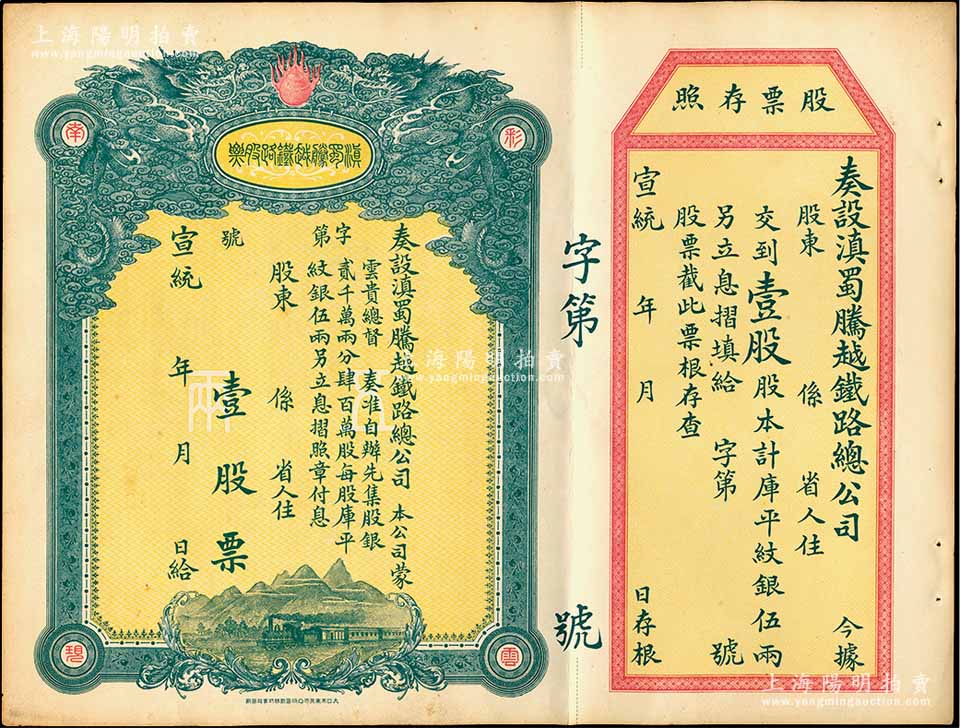 上海陽明拍賣
www.yangmingauction.com
股票存照
奏設滇蜀騰越鐵路總公司 今據
股東 係 省人住
交到壹股股本計庫平紋銀伍兩
另立息摺填給 字第 號
股票截此票根存查
宣統 年 月 日存根
字第 號
滇蜀騰越鐵路股票
彩
南
雲
現
奏設滇蜀騰越鐵路總公司 本公司蒙
雲貴總督 奏准自辦先集股銀
貳千萬兩分肆百萬股每股庫平
紋銀伍兩另立息摺照章付息
字第 號
股東 係 省人住
壹股票
宣統 年 月 日給
伍兩
上海陽明拍賣
www.yangmingauction.com
上海陽明拍賣
www.yangmingauction.com